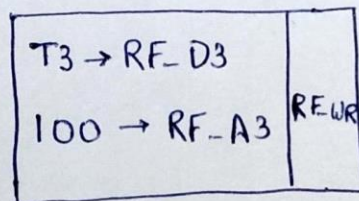 T3 → RF_D3
100 → RF_A3
RF_WR